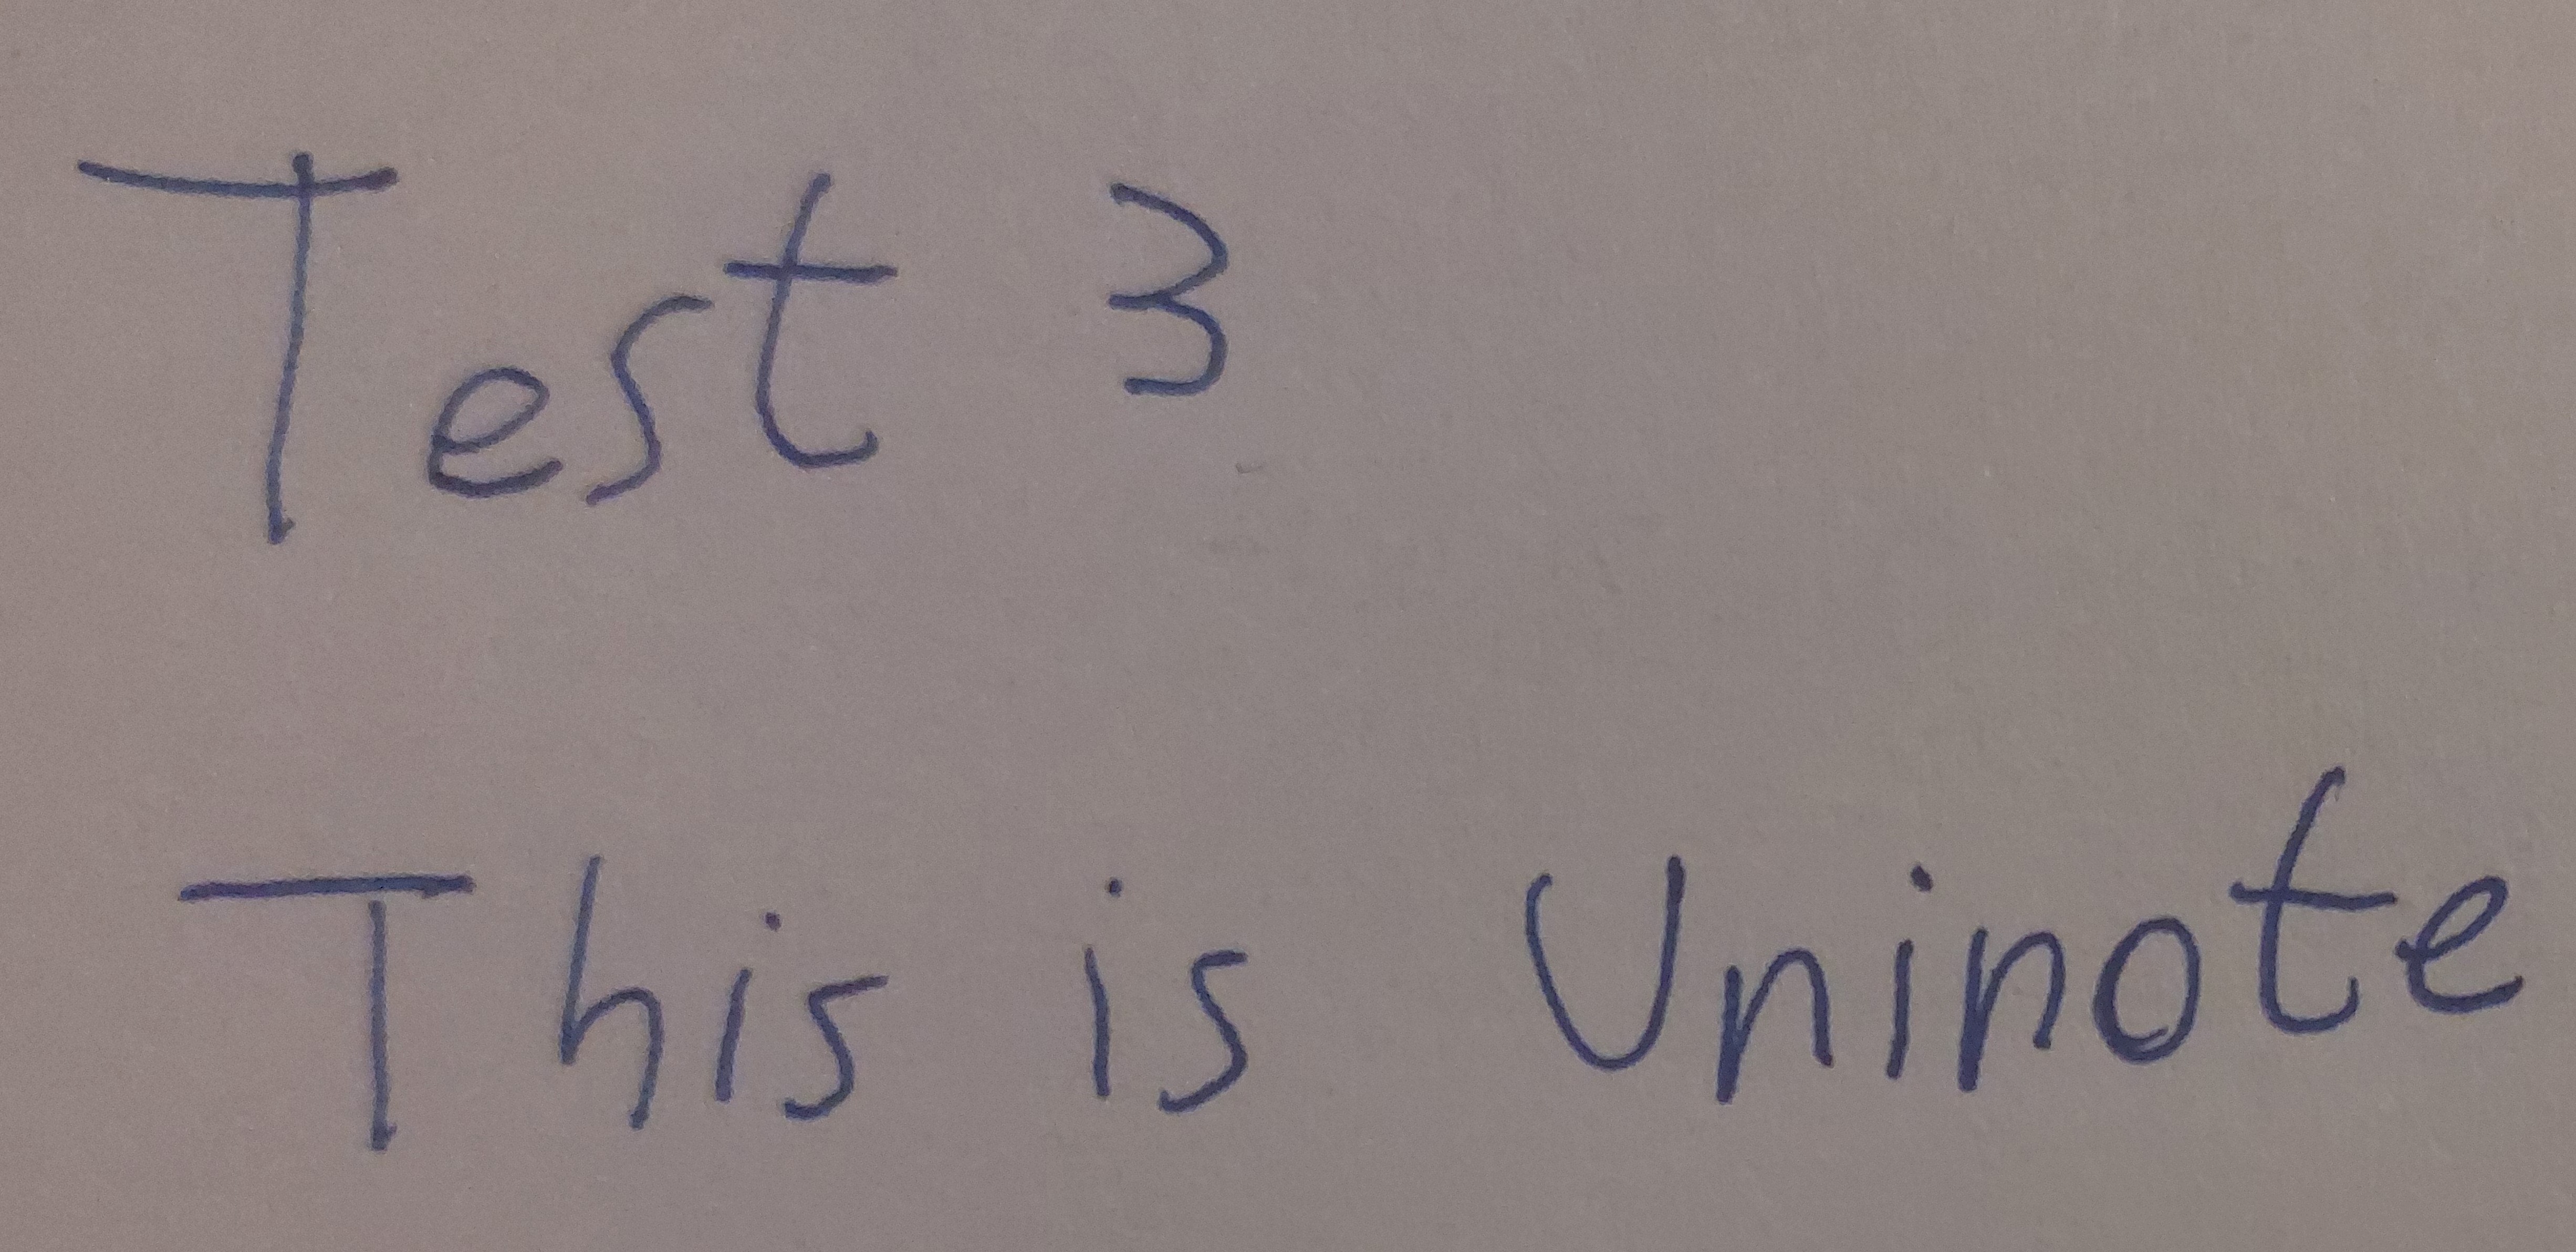 Test 3
This is Uninote